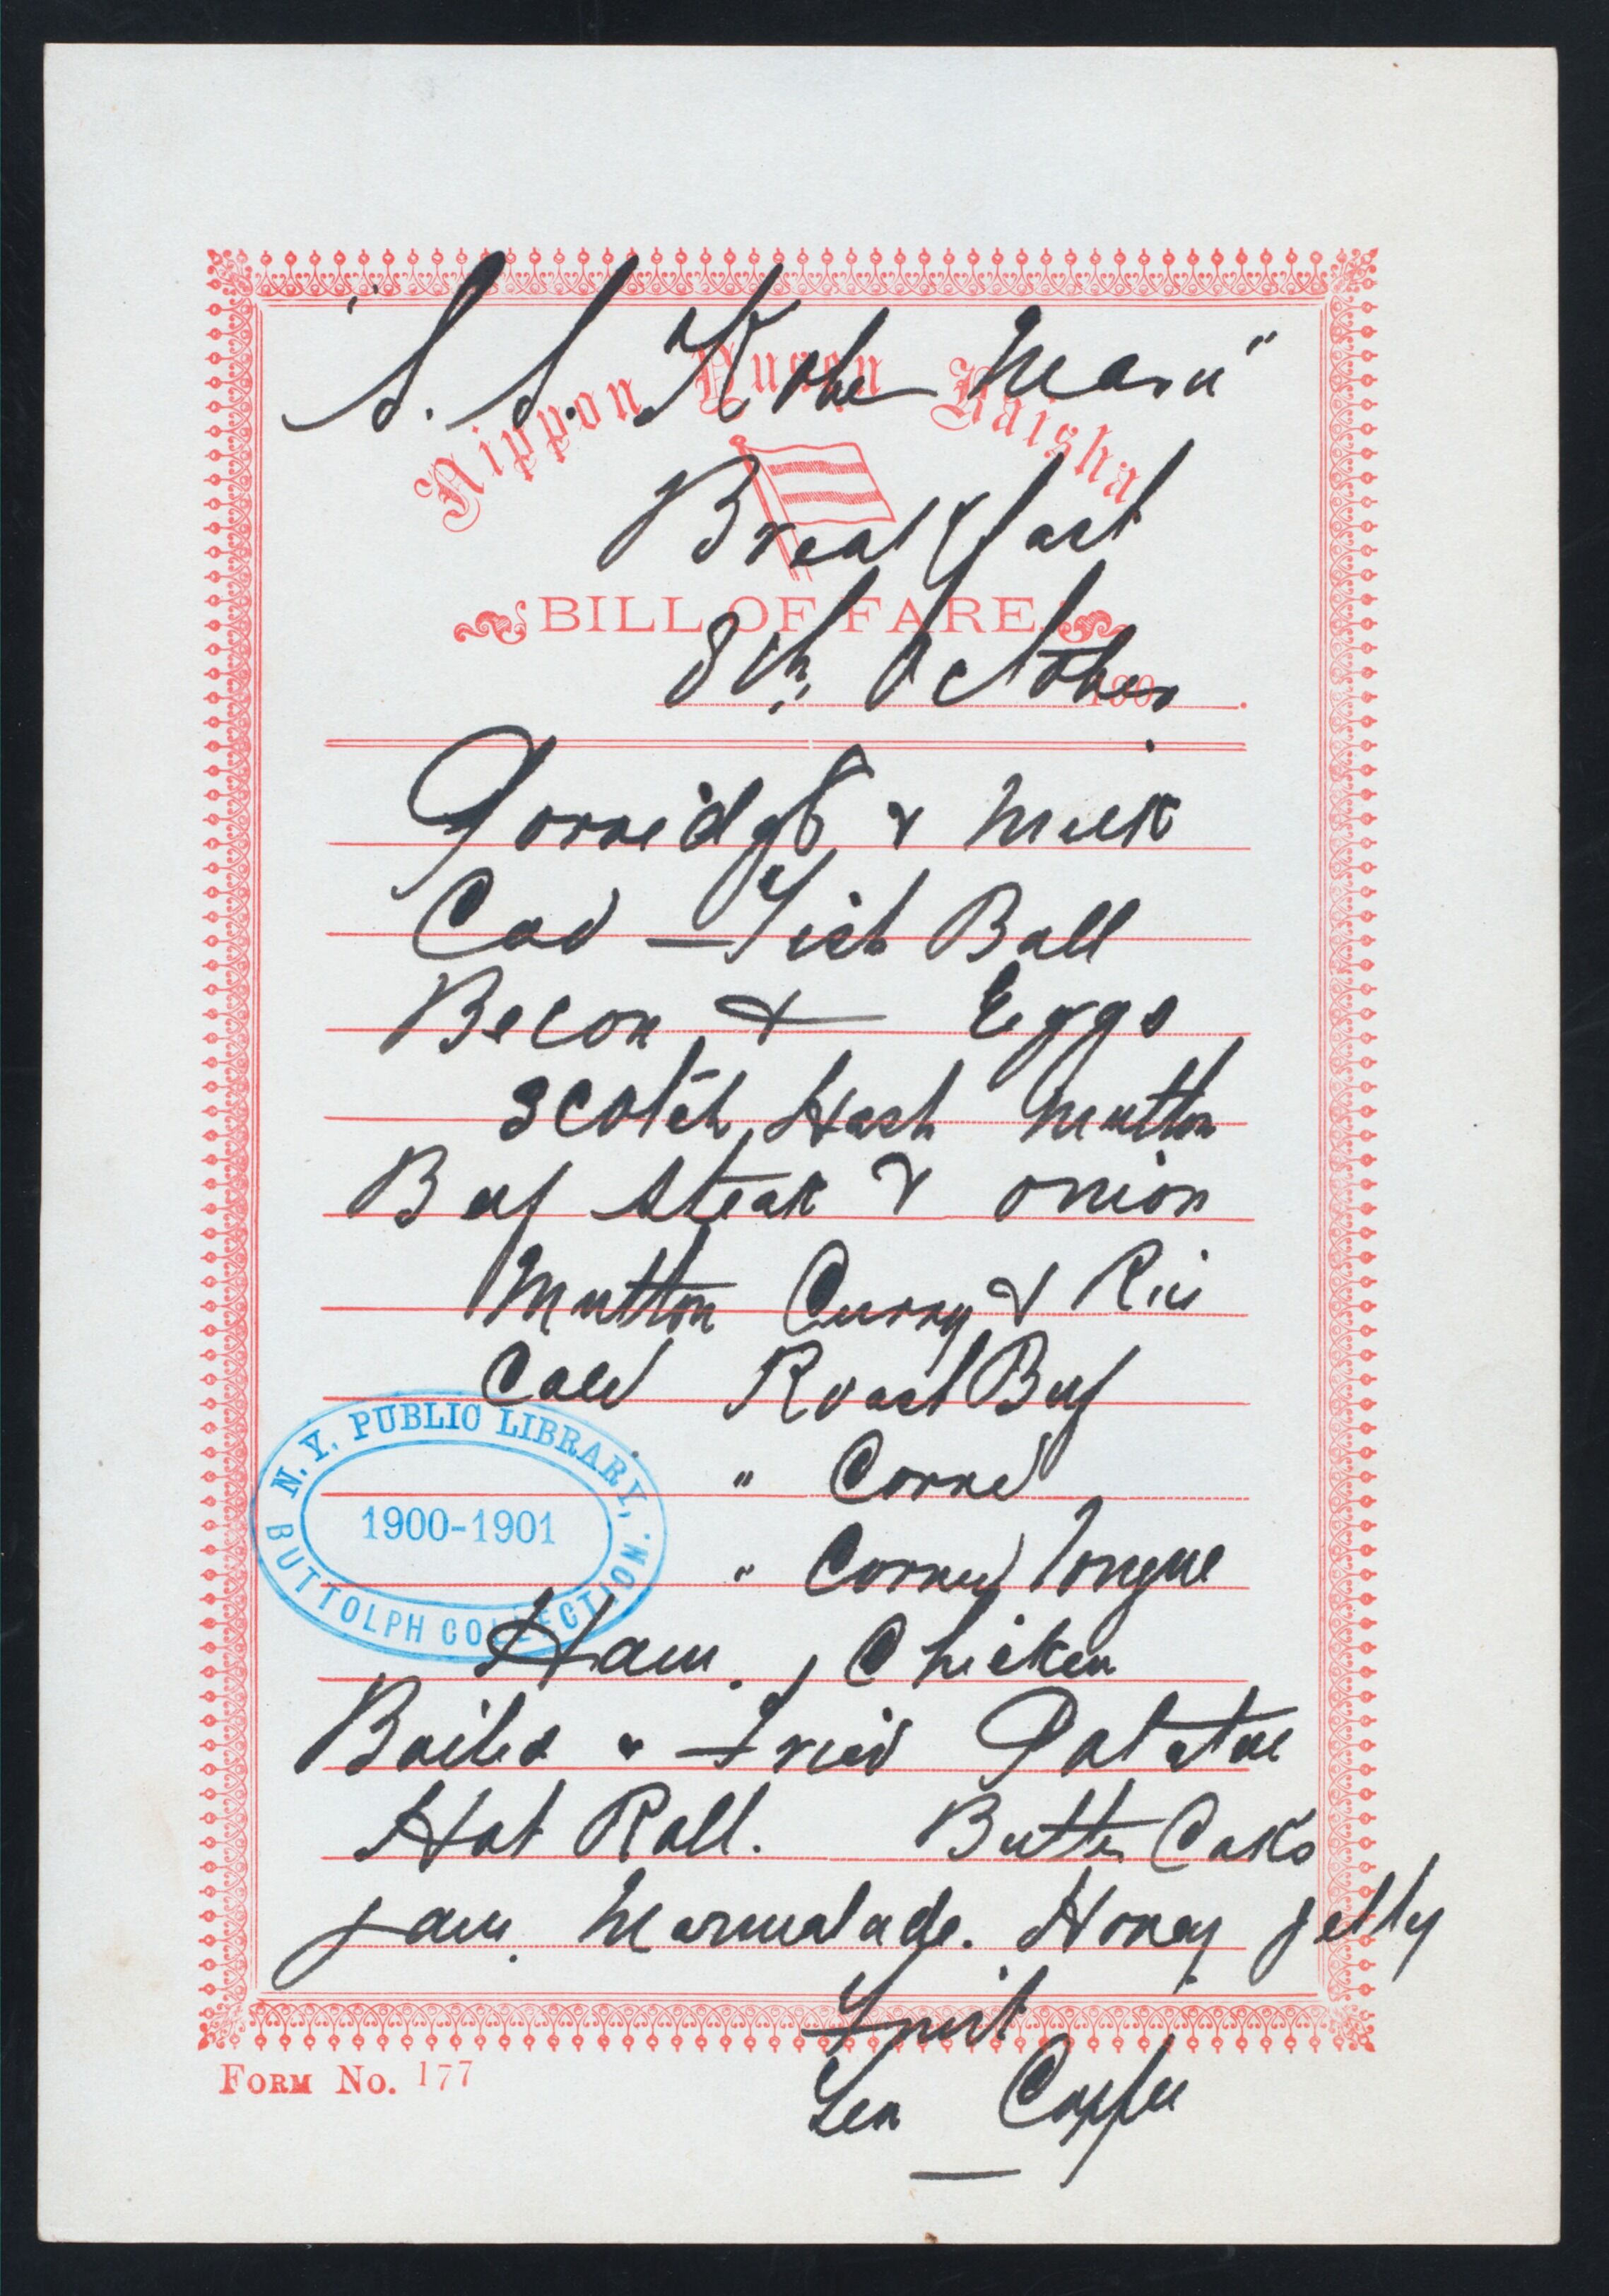 "S. S. Kobe Maru"
Nippon Yusen Kaisha
Breakfast
BILL OF FARE.
8th, October 190
Porridge & Milk
Cod - Fish Ball
Becon & Eggs
Scotch Hash Mutton
Beef Steak & onion
Mutton Curry & Rice
Cold Roast Beef
" Corned "
" Corned Tongue
Ham. , Chicken
Boiled & Fried Potatoe
Hot Roll. Butter Cake
Jam. Marmalade. Honey Jelly
Fruit
Tea Coffee
N. Y. PUBLIC LIBRARY,
1900-1901
BUTTOLPH COLLECTION.
FORM NO. 177